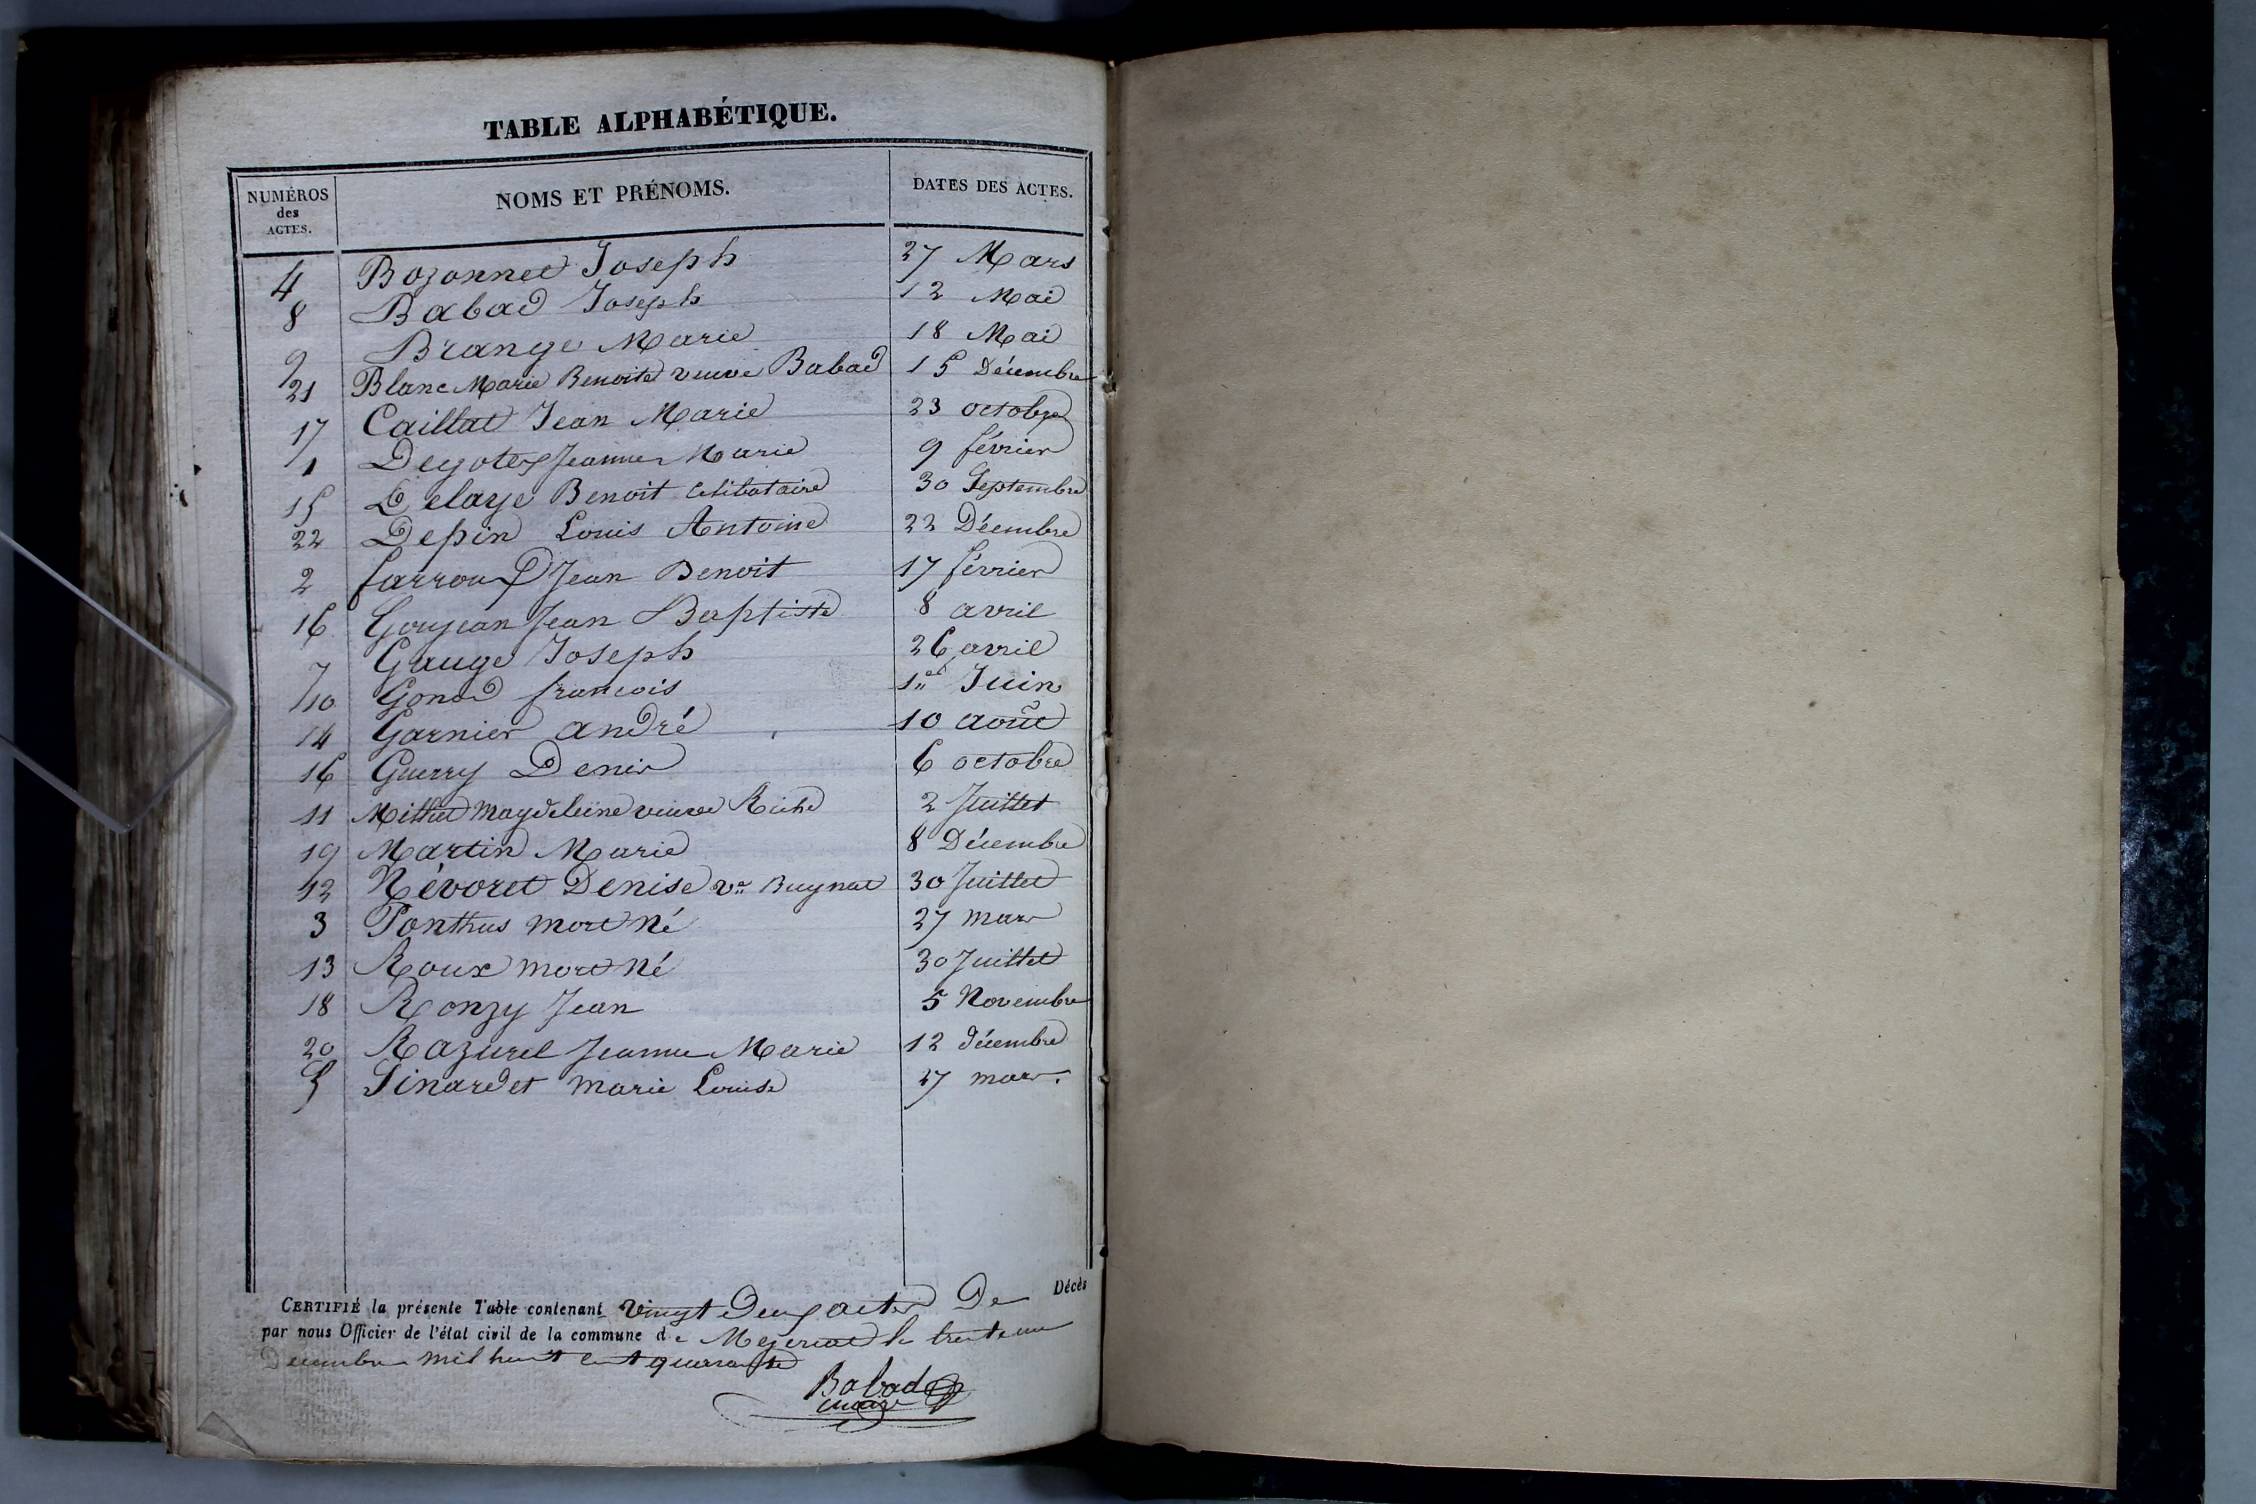 TABLE ALPHABÉTIQUE.
NUMÉROS des ACTES. NOMS ET PRÉNOMS. DATES DES ACTES.
4 Bozonnet Joseph 27 Mars
8 Babad Joseph 12 Mai
9 Brange Marie 18 Mai
21 Blanc Marie Benoite veuve Babad 15 Décembre
17 Caillat Jean Marie 23 octobre
1 Degotex Jeanne Marie 9 février
15 Delaye Benoit Celibataire 30 Septembre
22 Depin Louis Antoine 22 Décembre
2 farroux Jean Benoit 17 février
16 Goujean Jean Baptiste 8 avril
7 Gauge Joseph 26 avril
10 Gonod francois 1er Juin
14 Garnier andré 10 août
16 Guerry Denis 6 octobre
11 Magdeleine veuve Riche 2 Juillet
19 Martin Marie 8 Décembre
12 Névoret Denise ve Buynat 30 Juillet
3 Ponthus mort Né 27 mars
13 Roux mort Né 30 Juillet
18 Ronzy Jean 5 Novembre
20 Razurel Jeanne Marie 12 décembre
5 Sinardet marie Louise 27 mars.
CERTIFIÉ la présente Table contenant vingt Deux actes De Décès
par nous Officier de l'état civil de la commune de Mezeriat le trente un
Decembre mil huit cent quarante
Babad
maire